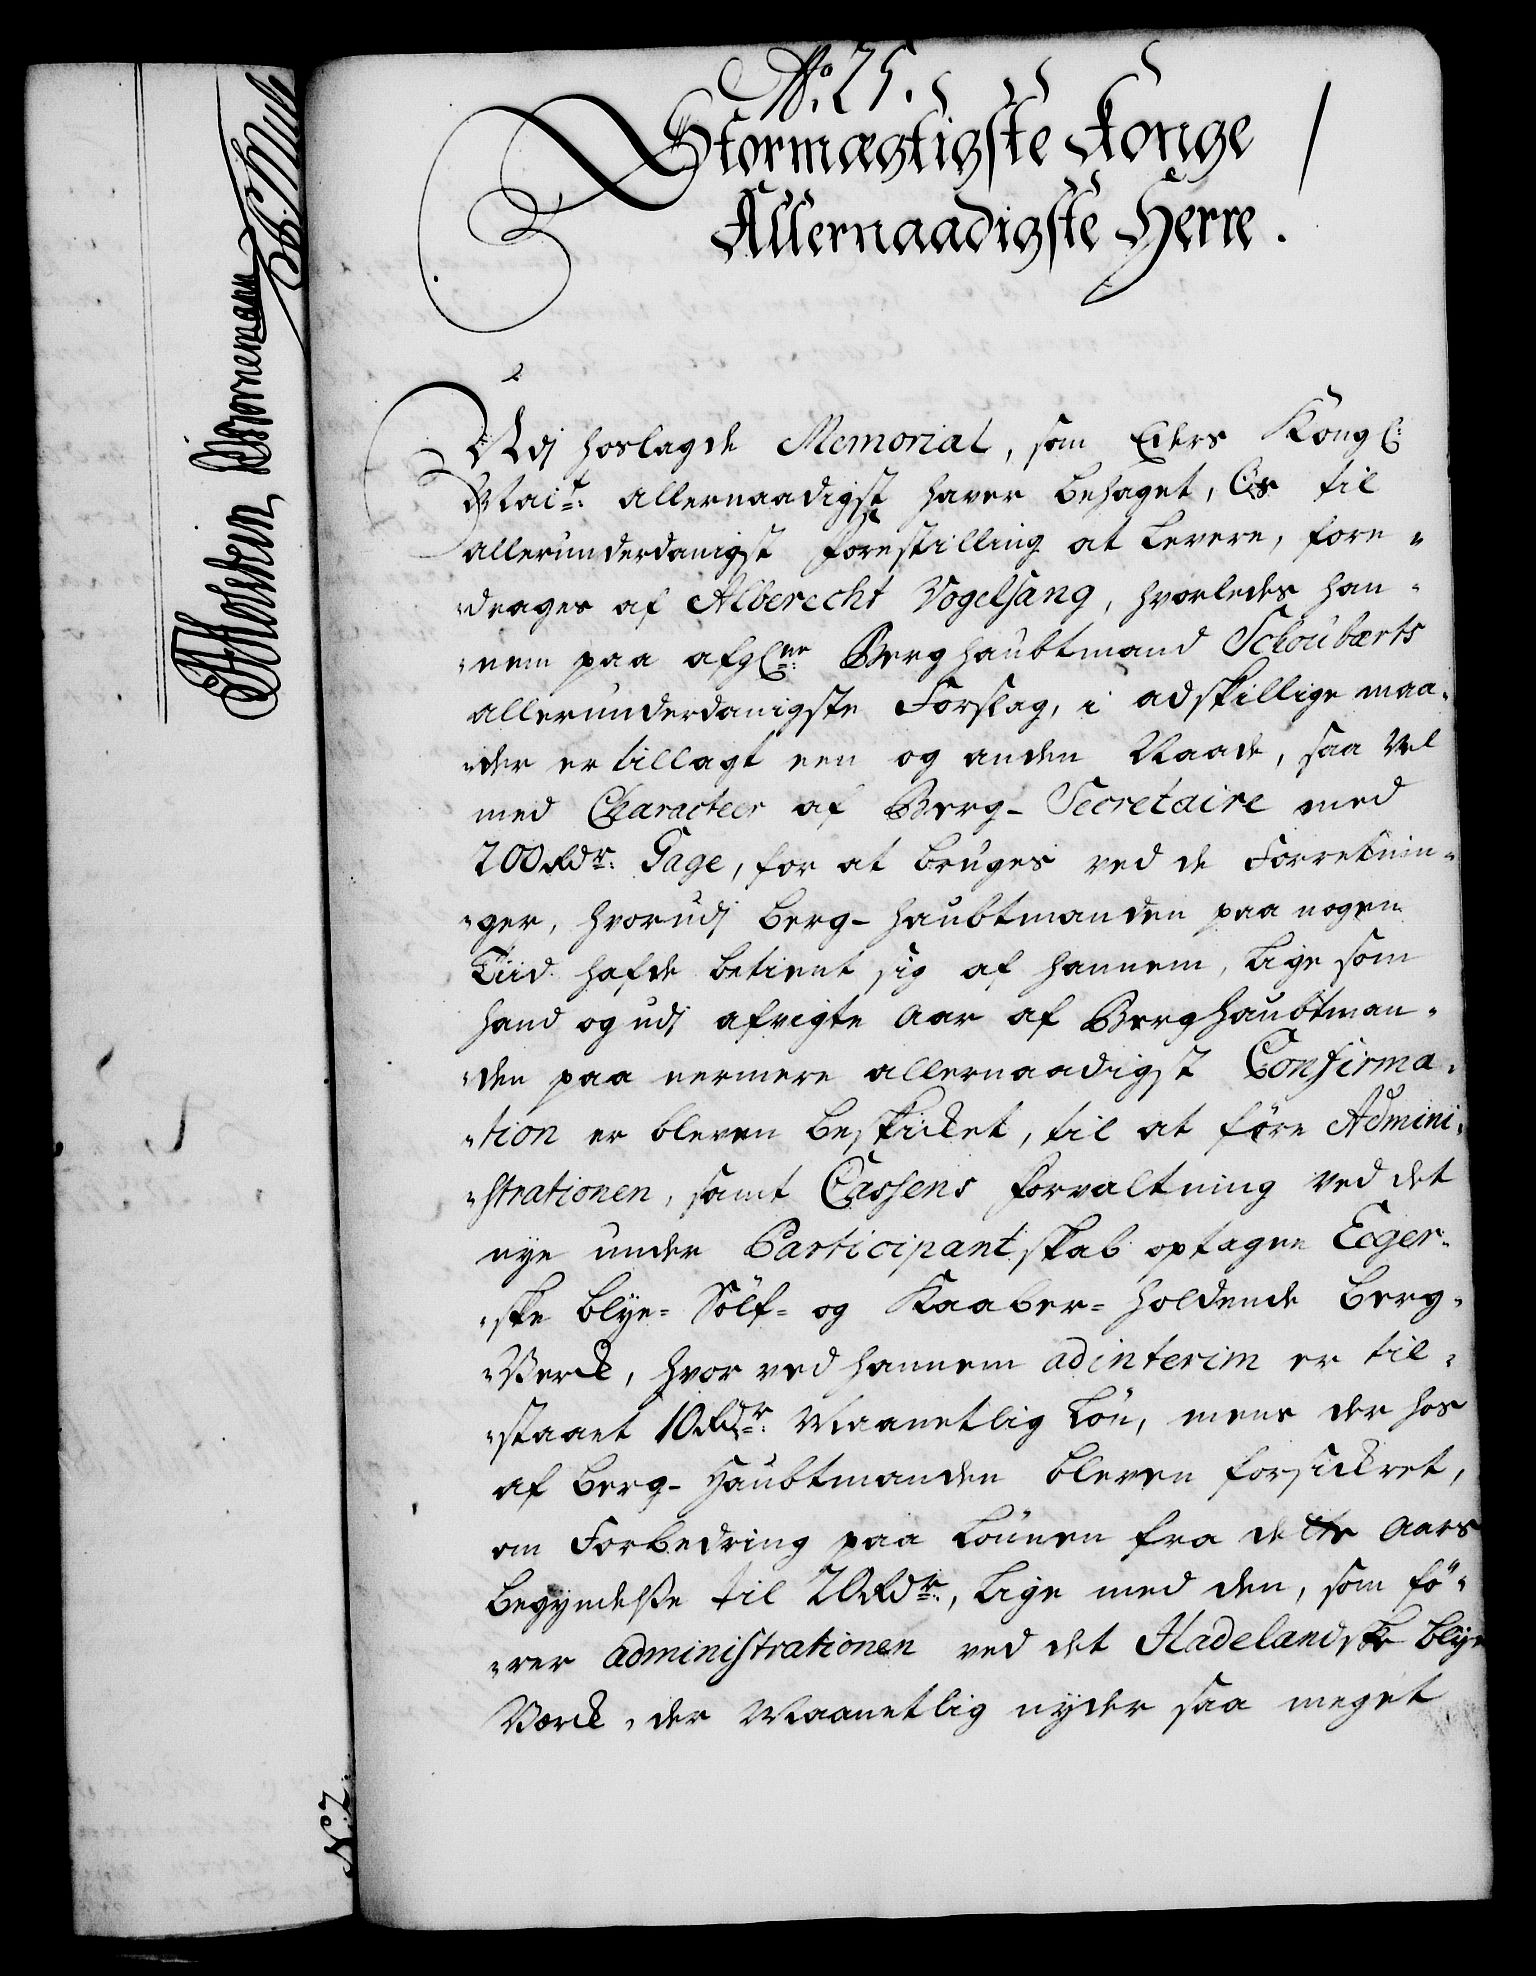 No. 25.
Stormægtigste Konge
Allernaadigste Herre.
Udj hoslagde Memorial, som Eders Kongl:
Mait: allernaadigst haver behaget, Os til
allerunderdanigst forestilling at levere, fore-
drages af Alberecht Vogelsang, hvorledes han-
nem paa afgl:ne Berghaubtmand Schoubærts
allerunderdanigste Forslag, i adskillige maa-
der er tillagt een og anden Naade, saa vel
med Characteer af Berg-Secretaire med
200 Rdr: Gage, for at bruges ved de Forretnin-
ger, hvorudj Berg-haubtmanden paa nogen
Tiid hafde betient sig af hannem, lige som
hand og udj afvigte Aar af Berghaubtman-
den paa nermere allernaadigst Confirma-
tion er bleven beskicket, til at føre Admini-
strationen, samt Cassens forvaltning ved det
nye under Participantskab optagne Eeger-
ske blye- Sölf- og Kaaber- holdende Berg-
Verck, hvor ved hannem ad interim er til-
staaet 10 Rdr: Maanetlig Lön, mens der hos
af Berg-Haubtmanden bleven forsickret,
om Forbedring paa Lönnen fra dette Aars
begyndelse til 20 Rdr:, lige med den, som fö-
rer administrationen ved det Hadelandske blye
Værck, der Maanetlig nyder saa meget
Bornemann
N. 2.